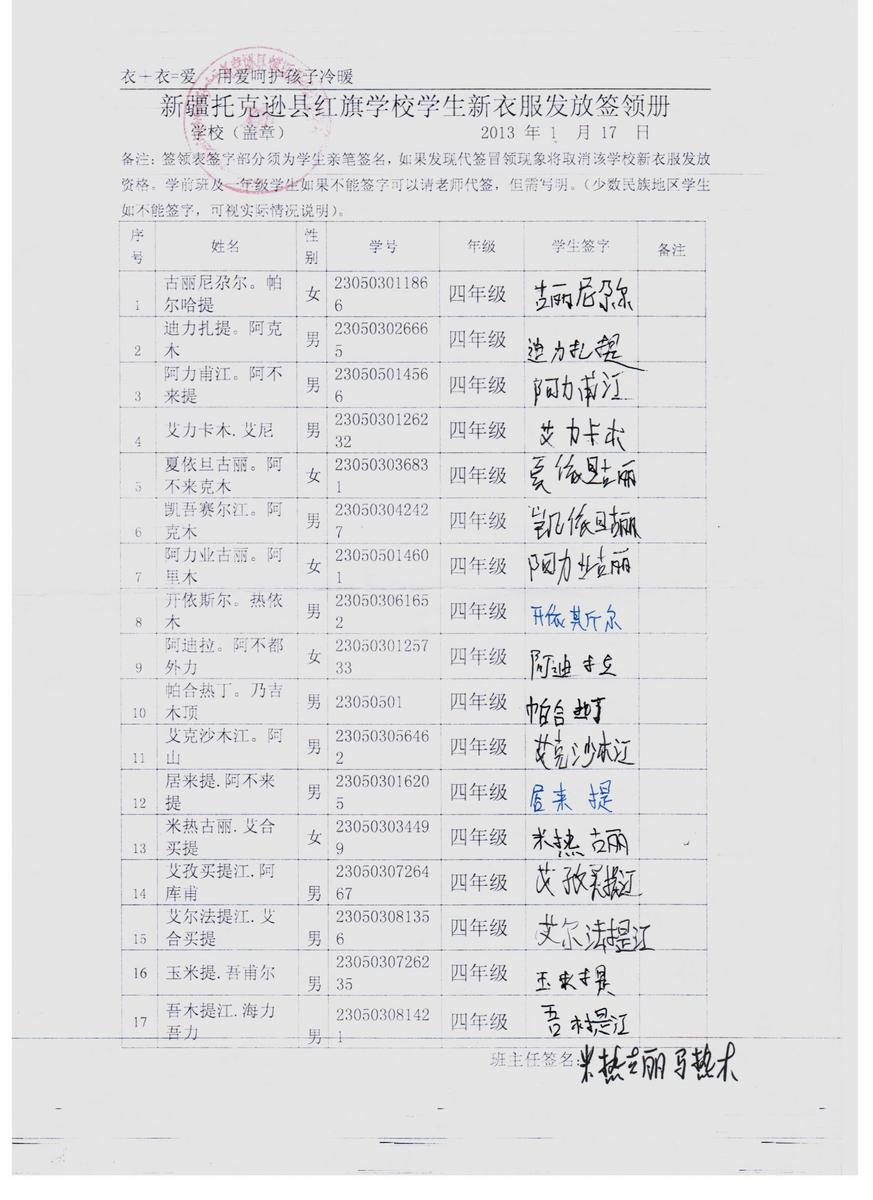 衣+衣=爱 用爱呵护孩子冷暖
新疆托克逊县红旗学校学生新衣服发放签领册
学校（盖章） 2013 年 1 月 17 日
备注：签领表签字部分须为学生亲笔签名，如果发现代签冒领现象将取消该学校新衣服发放
资格。学前班及一年级学生如果不能签字可以请老师代签，但需写明。（少数民族地区学生
如不能签字，可视实际情况说明）。
序号 姓名 性别 学号 年级 学生签字 备注
1 古丽尼尕尔。帕尔哈提 女 230503011866 四年级 古丽尼尕尔
2 迪力扎提。阿克木 男 230503026665 四年级 迪力扎提
3 阿力甫江。阿不来提 男 230505014566 四年级 阿力甫江
4 艾力卡木.艾尼 男 2305030126232 四年级 艾力卡木
5 夏依旦古丽。阿不来克木 女 230503036831 四年级 夏依旦古丽
6 凯吾赛尔江。阿克木 男 230503042427 四年级 凯依旦古丽
7 阿力业古丽。阿里木 女 230505014601 四年级 阿力业古丽
8 开依斯尔。热依木 男 230503061652 四年级 开依斯尔
9 阿迪拉。阿不都外力 女 2305030125733 四年级 阿迪拉
10 帕合热丁。乃吉木顶 男 23050501 四年级 帕合热丁
11 艾克沙木江。阿山 男 230503056462 四年级 艾克沙木江
12 居来提.阿不来提 男 230503016205 四年级 居来提
13 米热古丽.艾合买提 女 230503034499 四年级 米热古丽
14 艾孜买提江.阿库甫 男 2305030726467 四年级 艾孜买提江
15 艾尔法提江.艾合买提 男 230503081356 四年级 艾尔法提江
16 玉米提.吾甫尔 男 2305030726235 四年级 玉米提
17 吾木提江.海力吾力 男 230503081421 四年级 吾木提江
班主任签名：米热古丽 马热木